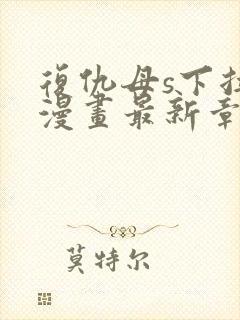 復仇母s下拉
漫畫最新章
莫特尔